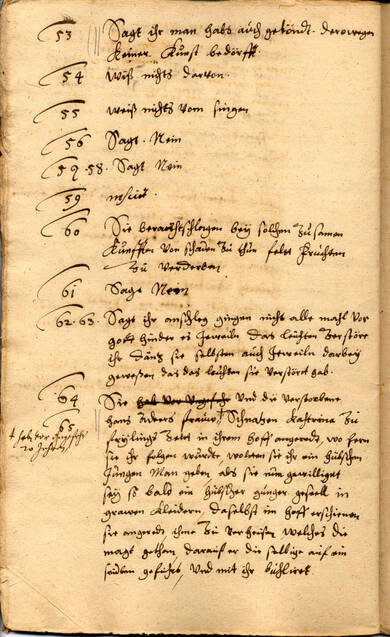 53 Sagt ihr man habs auch gekondt. derowegen
keiner Kunst bedörfft
54 Weiß nichts darvon.
55 weiß nichts vom singen
56 Sagt. Nein
59. 58. Sagt Nein
59 nescit.
60 Sie berathschlagen bey solchen zusamen
Kunfften von schaden zu thun felt früchten
zu verderben
61 Sagt Nein
62. 63. Sagt ihr anschleg gingen nicht alle mahl vor
gott hinder es Jeweiln das leuchten zerstöre
ihr dantz sie selbsten auch Jeweiln darbey
geweßen das das leuchten sie verstöret hab.
64 Sie und die verstorbene
65 hans frauw Schnatzen Kathrina zu
+ vor
20 Jahren
in ihrem hoff angeredt, wo fern
sie ihr folgen würdt, wolten sie ihr ein hübschen
Jungen Man geben, als sie nun gewilliget
sey so bald ein hübscher junger gesell in
grawen Kleidern, daselbst im hoff erschienen
sie angeredt ihme zu verheisen welches die
magt gethan, darauf er die selbige auf ein
geführt, Und mit ihr